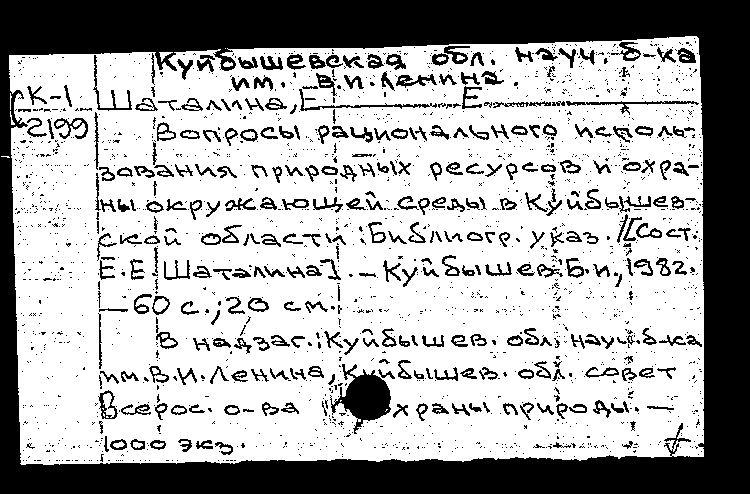 Куйбышевская обл. науч. б-ка
им. В.И.Ленина.
К-1 Шаталина, Е Е
2199 Вопросы рационального исполь-
зования природных ресурсов и охра-
ны окружающей среды в Куйбышев-
ской области : Библиогр. указ. /[Сост.
Е.Е.Шаталина]. – Куйбышев: Б.и., 1982.
– 60 с.; 20 см.
В надзаг.: Куйбышев. обл. науч. б-ка
им. В.И.Ленина, Куйбышев. обл. совет
Всерос. о-ва охраны природы. –
1000 экз.